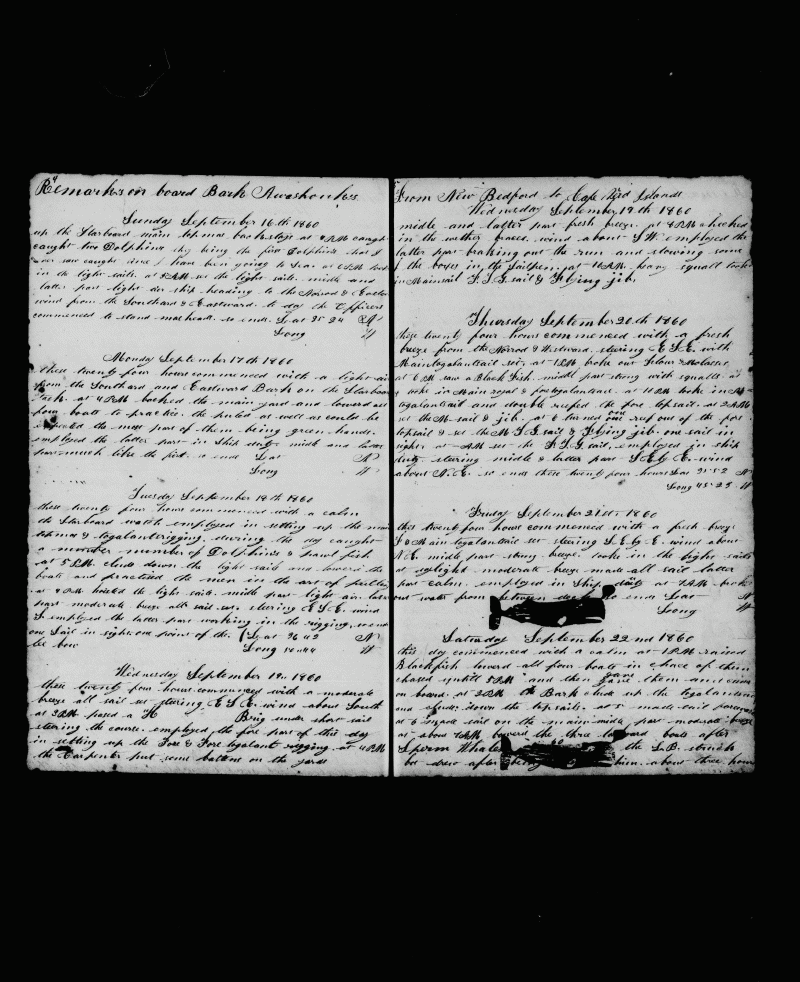 Remarks on board Bark Awashonks
Sunday September 16th 1860
up the Starboard main topmas backstays at 4PM caught
caught two Dolphins they being the first Dolphins that I
ever saw caught since I have been going to Sea at 6PM took
in the light sails. at 5AM set the light sails. middle and
latter part light air ship heading to the Norrod & Eastw
wind from the Southard & Eastward. to day the Officers
commenced to stand mastheads. so ends. Lat 35 24 N
Long W
Monday September 17th 1860
these twenty four hours commenced with a light air
from the Southard and Eastward Bark on the Starboard
Tack. at 4PM backed the main yard and lowered all
four boats to practice. the puled as well as could be
expected the most part of them being green hands.
employed the latter part in Ship duty middle and latter
part much like the first. so ends Lat N
Long W
Tuesday September 18th 1860
these twenty four hours commenced with a calm
the Starboard watch employed in setting up the main
topmas & togalant rigging. during the day caught
a number number of Dolphins & fish
at 5PM clued down the light sails and lowered the
boats and practised the men in the art of pulling
at 8PM the light sails. middle part light air. later
part moderate breeze all sail set, stering E.S.E. wind
S. employed the latter part working in the rigging, so ends
one Sail in sight one point of the Lat 36 42 N
lee bow Long W
Wednesday September 19th 1860
these twenty four hours commenced with a moderate
breeze all sail set stering E.S.E. wind about South
at 3PM passed a H Brig under short sail
stering the course. employed the fore part of this day
in setting up the Fore & Fore togalant rigging. at 4PM
the Carpenter put some battens on the yards
From New Bedford to Cape Verd Islands
Wednesday September 19th 1860
middle and latter part fresh breeze. at 8PM checked
in the wether braces. wind about SW employed the
latter part braking out the run and stowing some
of the boxes in the Sailpen. at 10AM heavy squall tooke
in Mainsail F.T.G sail & Flying jib.
Thursday September 20th 1860
these twenty four hours commenced with a fresh
breeze from the Norrod & Westward. stering E.S.E. with
Maintogalantsail set. at 1PM broke out Flour & Molasses,
at 6PM saw a Black Fish. middle part strong with squalls. at
tooke in Main royal & foretogalantsail. at 11PM tooke in M
togalantsail and double reefed the fore topsail. at 2AM
set the M-sail & jib. at 6 turned out one reef out of the fore
topsail & set the M.T.G. sail & Flying jib. one sail in
sight. at AM set the F.T.G. sail, employed in ship
duty. stering middle & latter part S.E. by E. wind
about N.E. so ends these twenty four hours Lat 35 52 N
Long 45 25 W
Friday September 21st 1860
this twent four hours commenced with a fresh breeze
F & Main togalantsail set stering S.E. by E. wind about
N.E. middle part strong breeze. tooke in the light sails
at daylight moderate breeze made all sail latter
part calm. employed in Ship duty at 7AM broke
out water from between decks so ends Lat N
Long W
Saturday September 22nd 1860
this day commenced with a calm at 1PM raised
Blackfish lowerd all four boats in chace of them
chased uptill 5PM and then gave them and came
on board. at 2AM the Bark clued up the togalantsails
and clued down the topsails. at 5 made sail
at 6 made sail on the main. middle part moderate breeze
at about 7AM lowerd the three larbord boats after
Sperm Whales the L.B. struck
but drew after being him about three hours